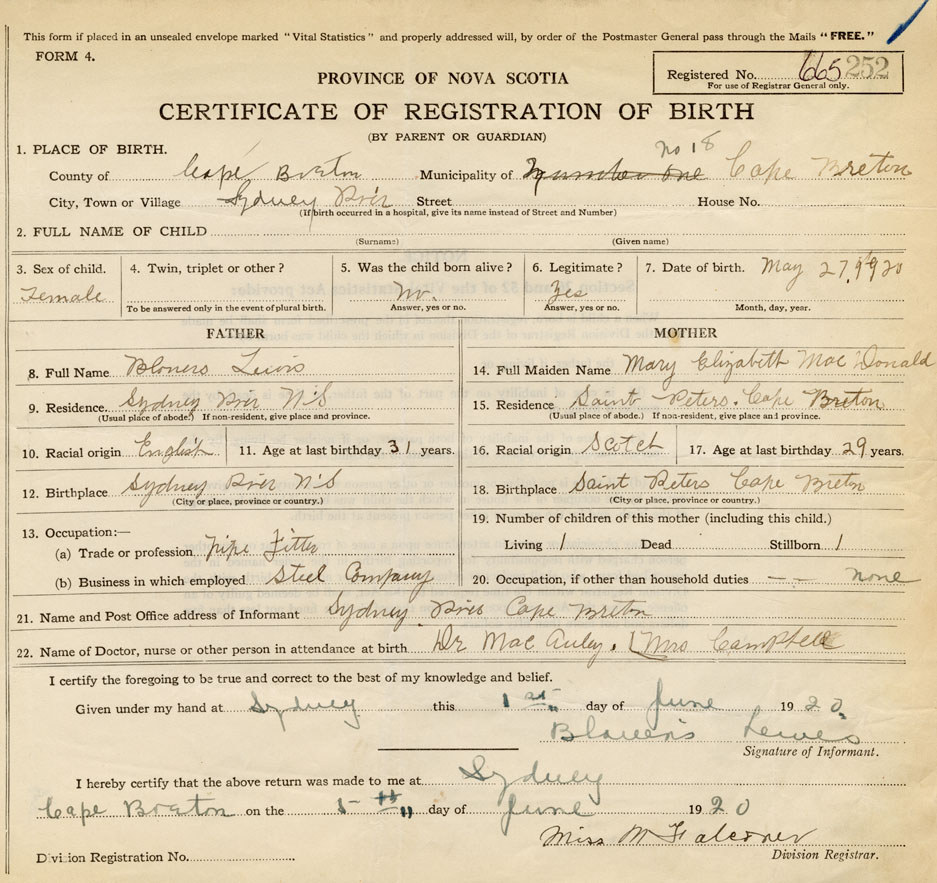 This form if placed in an unsealed envelope marked "Vital Statistics" and properly addressed will, by order of the Postmaster General pass through the Mails "FREE."
FORM 4.
PROVINCE OF NOVA SCOTIA
Registered No. 665 252
For use of Registrar General only.
CERTIFICATE OF REGISTRATION OF BIRTH
(BY PARENT OR GUARDIAN)
1. PLACE OF BIRTH.
no 18
County of Cape Breton Municipality of Number One Cape Breton
City, Town or Village Sydney River Street House No.
(If birth occurred in a hospital, give its name instead of Street and Number)
2. FULL NAME OF CHILD
(Surname) (Given name)
3. Sex of child. 4. Twin, triplet or other? 5. Was the child born alive? 6. Legitimate? 7. Date of birth. May 27, 1920
Female No. Yes
To be answered only in the event of plural birth. Answer, yes or no. Answer, yes or no. Month, day, year.
FATHER
8. Full Name Lewis
9. Residence Sydney River N'S
(Usual place of abode.) If non-resident, give place and province.
10. Racial origin English 11. Age at last birthday 31 years.
12. Birthplace Sydney River N'S
(City or place, province or country.)
13. Occupation:—
(a) Trade or profession Pipe Fitter
(b) Business in which employed Steel Company
MOTHER
14. Full Maiden Name Mary Elizabeth Mac Donald
15. Residence Saint Peters. Cape Breton
(Usual place of abode.) If non-resident, give place and province.
16. Racial origin Scotch 17. Age at last birthday 29 years.
18. Birthplace Saint Peters Cape Breton
(City or place, province or country.)
19. Number of children of this mother (including this child.)
Living 1 Dead Stillborn 1
20. Occupation, if other than household duties — — none
21. Name and Post Office address of Informant Sydney River Cape Breton
22. Name of Doctor, nurse or other person in attendance at birth Dr Mac Auley. (Mrs Campbell
I certify the foregoing to be true and correct to the best of my knowledge and belief.
Given under my hand at Sydney this 1st day of June 1920.
Lewis
Signature of Informant.
I hereby certify that the above return was made to me at Sydney
Cape Breton on the 5th day of June 1920
Miss M Falconer
Division Registrar.
Division Registration No.